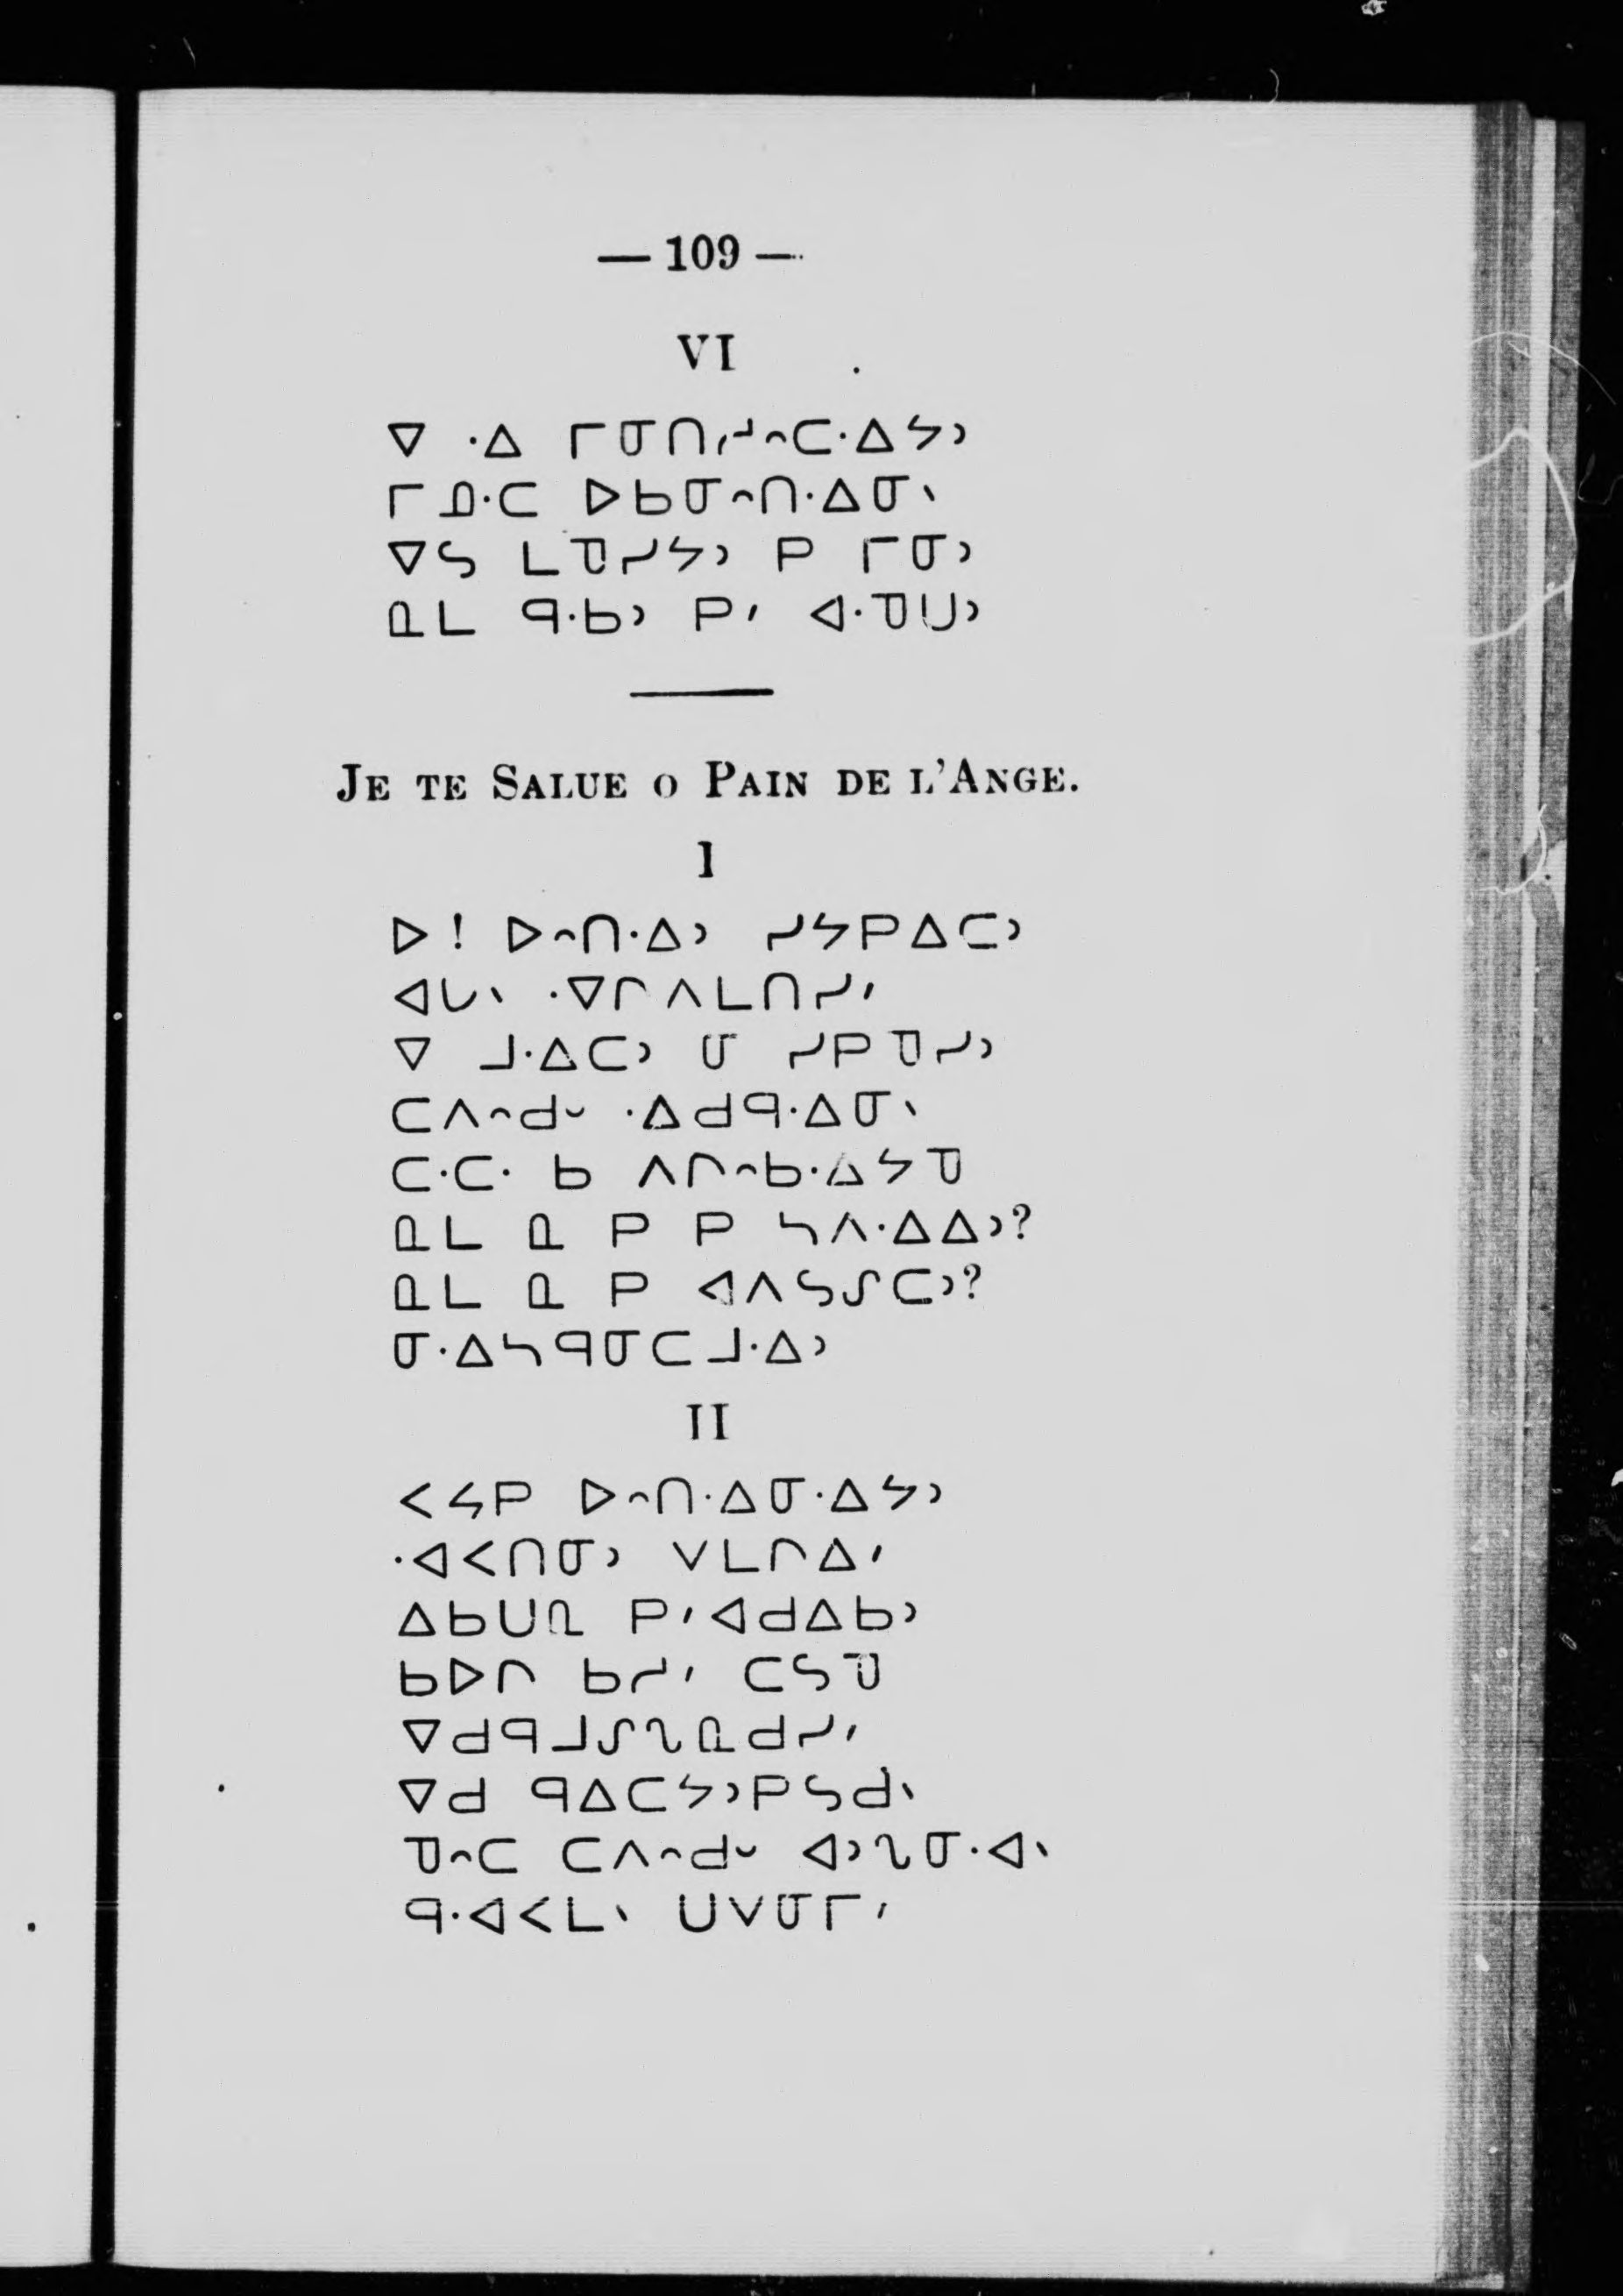 — 109 —
VI
ᐁ ᐧᐃ ᒥᓂᑎᓱᐢᑕᐧᐃᔭᐣ
ᒥᓄᐧᑕ ᐅᑲᓂᐢᑎᐧᐃᓂᐠ
ᐁᓴ ᒪᑫᓯᔭᐣ ᑭ ᒥᓂᐣ
ᓇᒪ ᑫᐧᑲᐣ ᑭᐟ ᐊᐧᑫᑌᐣ
JE TE SALUE O PAIN DE L'ANGE.
I
ᐅ! ᐅᐢᑎᐧᐃᐣ ᓯᔭᑭᐃᑕᐣ
ᐊᓓᐠ ᐧᐁᒋᐱᒪᑎᓯᐟ
ᐁ ᒧᐧᐃᑕᐣ ᓀ ᓯᑭᑫᓯᐣ
ᑕᐱᐢᑯᐨ ᐧᐃᑯᑫᐧᐃᓂᐠ
ᑕᐧᑕᐧ ᑲ ᐱᒋᐢᑲᐧᐃᔭᑫ
ᓇᒪ ᓇ ᑭ ᑭ ᓴᐱᐧᐃᐃᐣ?
ᓇᒪ ᓇ ᑭ ᐊᐱᓴᔑᑕᐣ?
ᓂᐧᐃᓴᑫᓂᑕᒧᐧᐃᐣ
II
ᐸᔦᑭ ᐅᐢᑎᐧᐃᓂᐧᐃᔭᐣ
ᐧᐊᐸᑎᓂᐣ ᐯᒪᒋᐃᐟ
ᐃᑲᑌᓇ ᑭᐟᐊᑯᐃᑲᐣ
ᑲᐅᒋ ᑲᓱᐟ ᑕᓴᑫ
ᐁᑯᑫᒧᔑᔐᓇᑯᓯᐟ
ᐁᑯ ᑫᐃᑕᔭᐣᑭᓴᑰᐠ
ᑫᐢᑕ ᑕᐱᐢᑯᐨ ᐊᐣᔐᓂᐧᐊᐠ
ᑫᐧᐊᐸᒪᐠ ᑌᐯᓂᒥᐟ